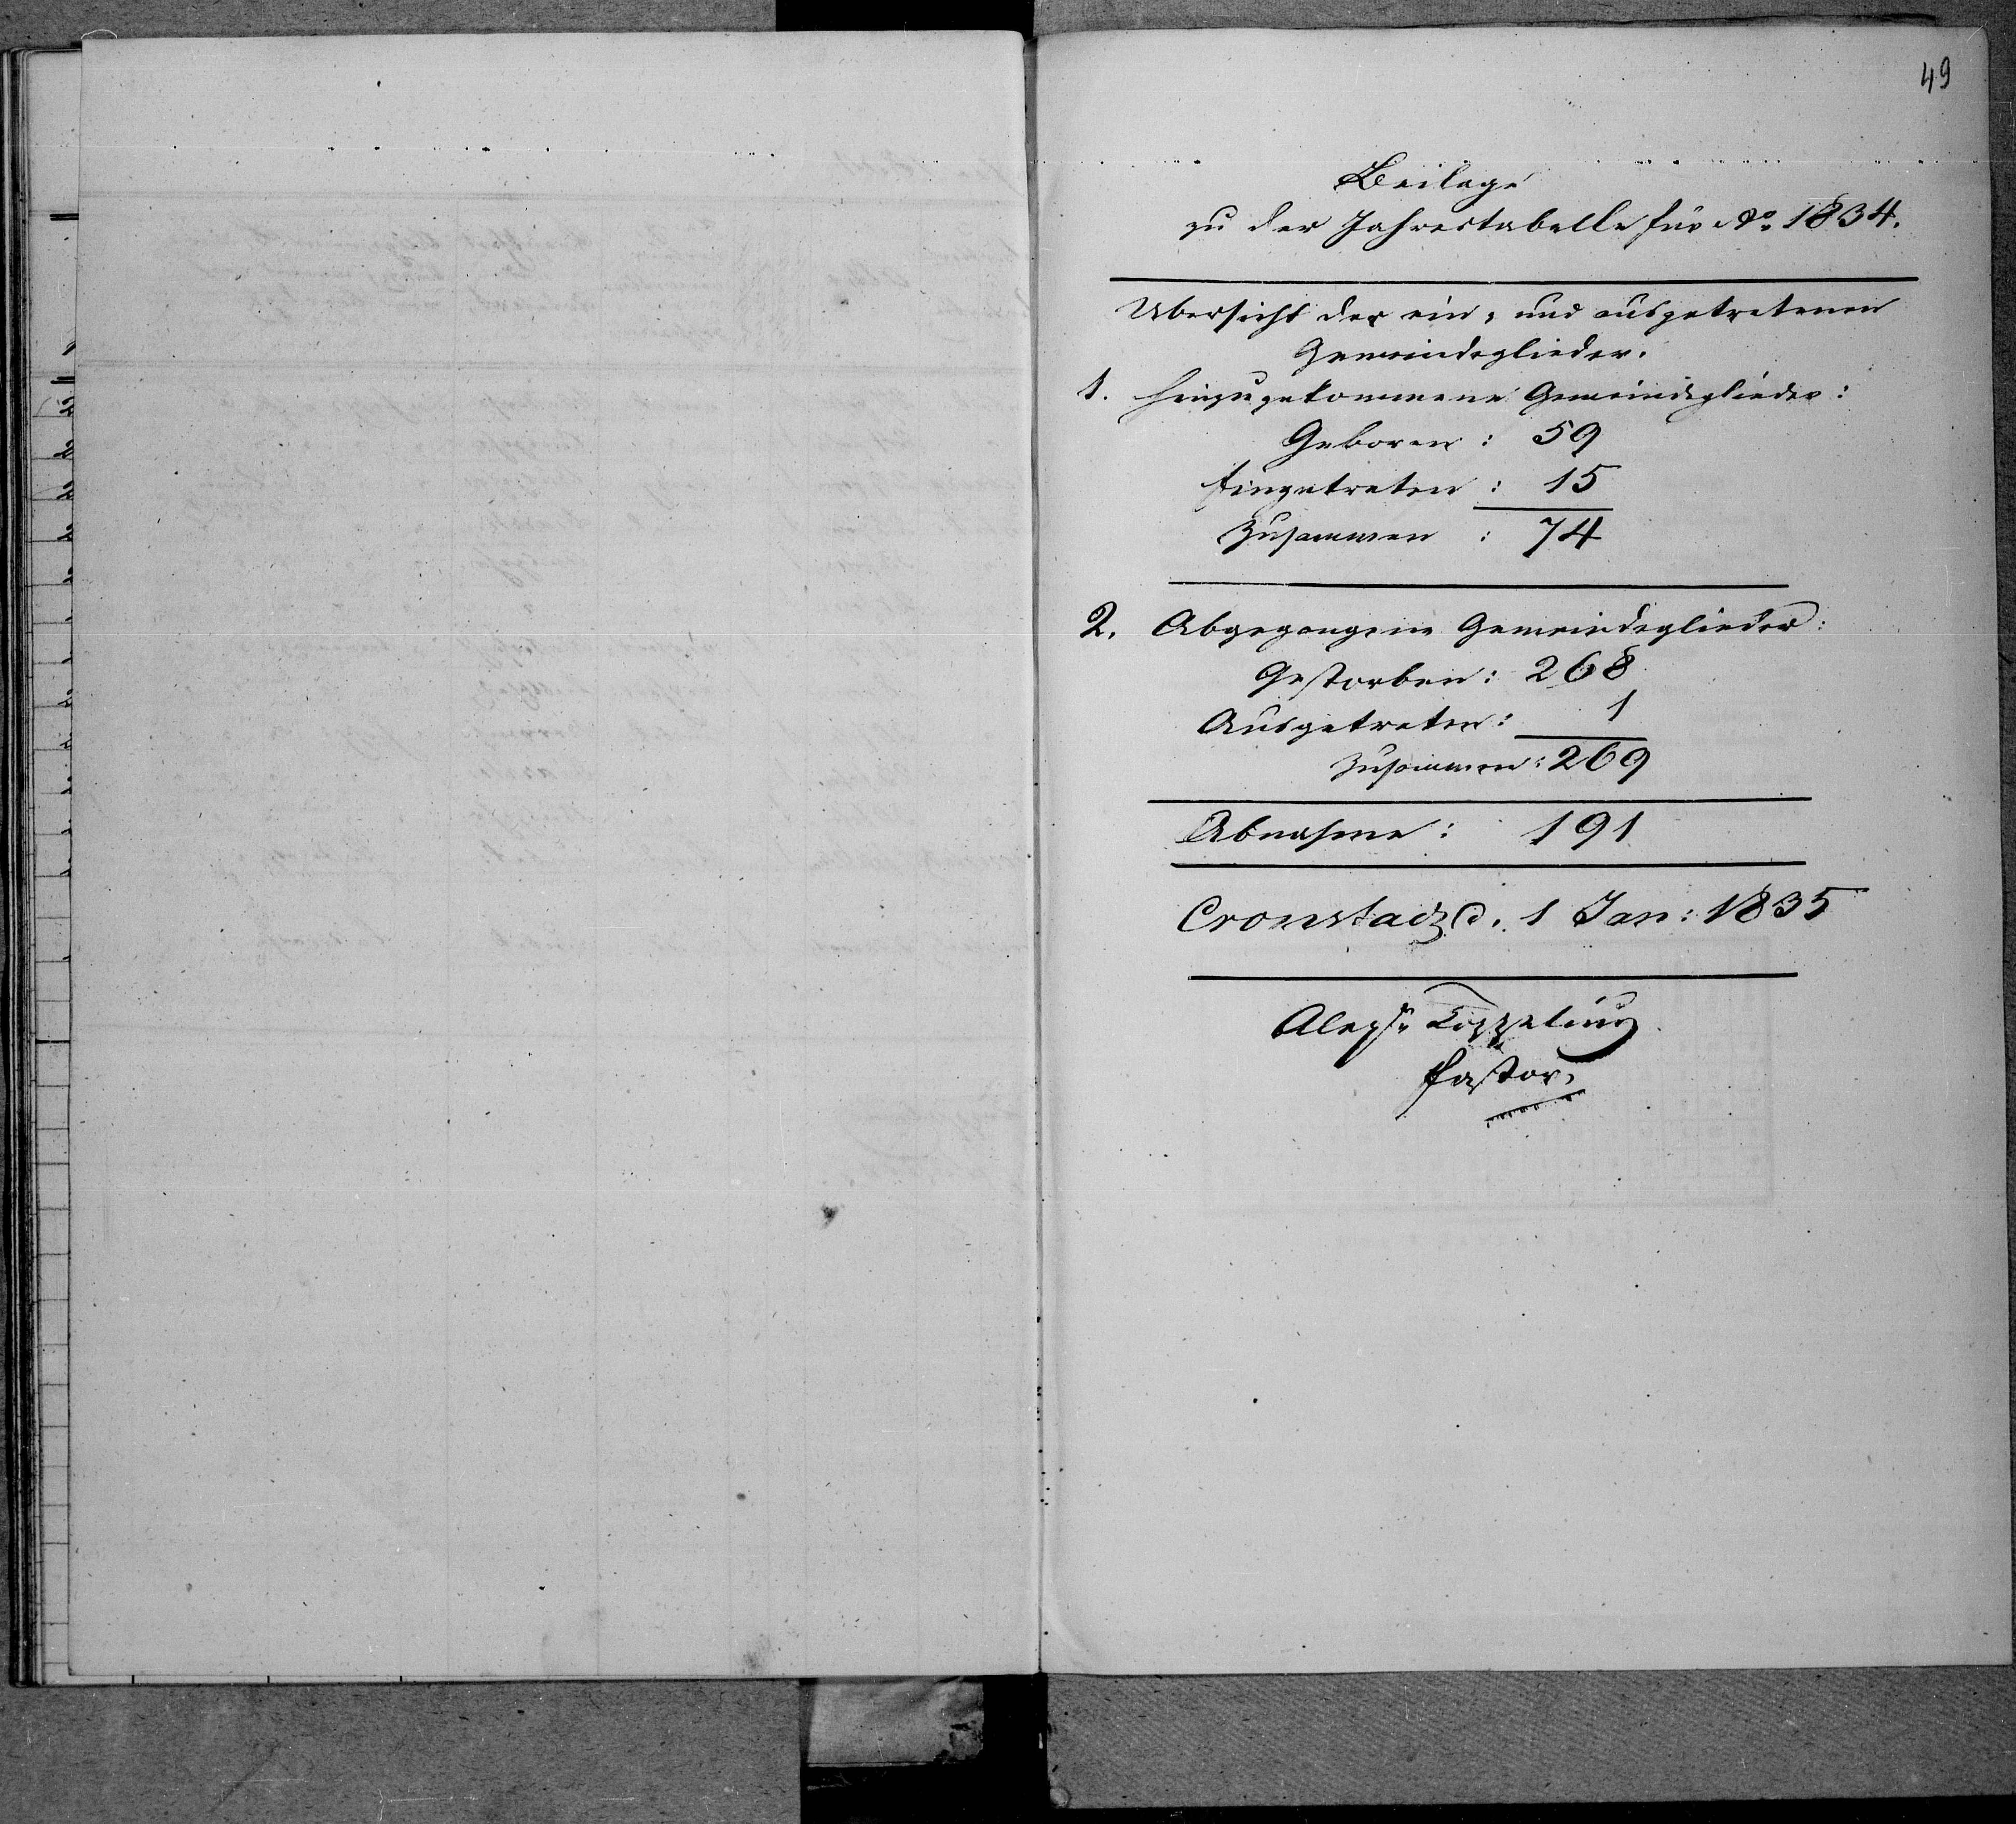 49
Beilage
zu der Jahrestabelle für Ao 1834.
Übersicht der ein- und ausgetretenen
Gemeindeglieder.
1. Hinzugekommene Gemeindeglieder:
Geboren: 59
Eingetreten: 15
Zusammen: 74
2. Abgegangene Gemeindeglieder:
Gestorben: 268
Ausgetreten: 1
Zusammen: 269
Abnahme: 191
Cronstadt d. 1 Jan: 1835
Pastor.